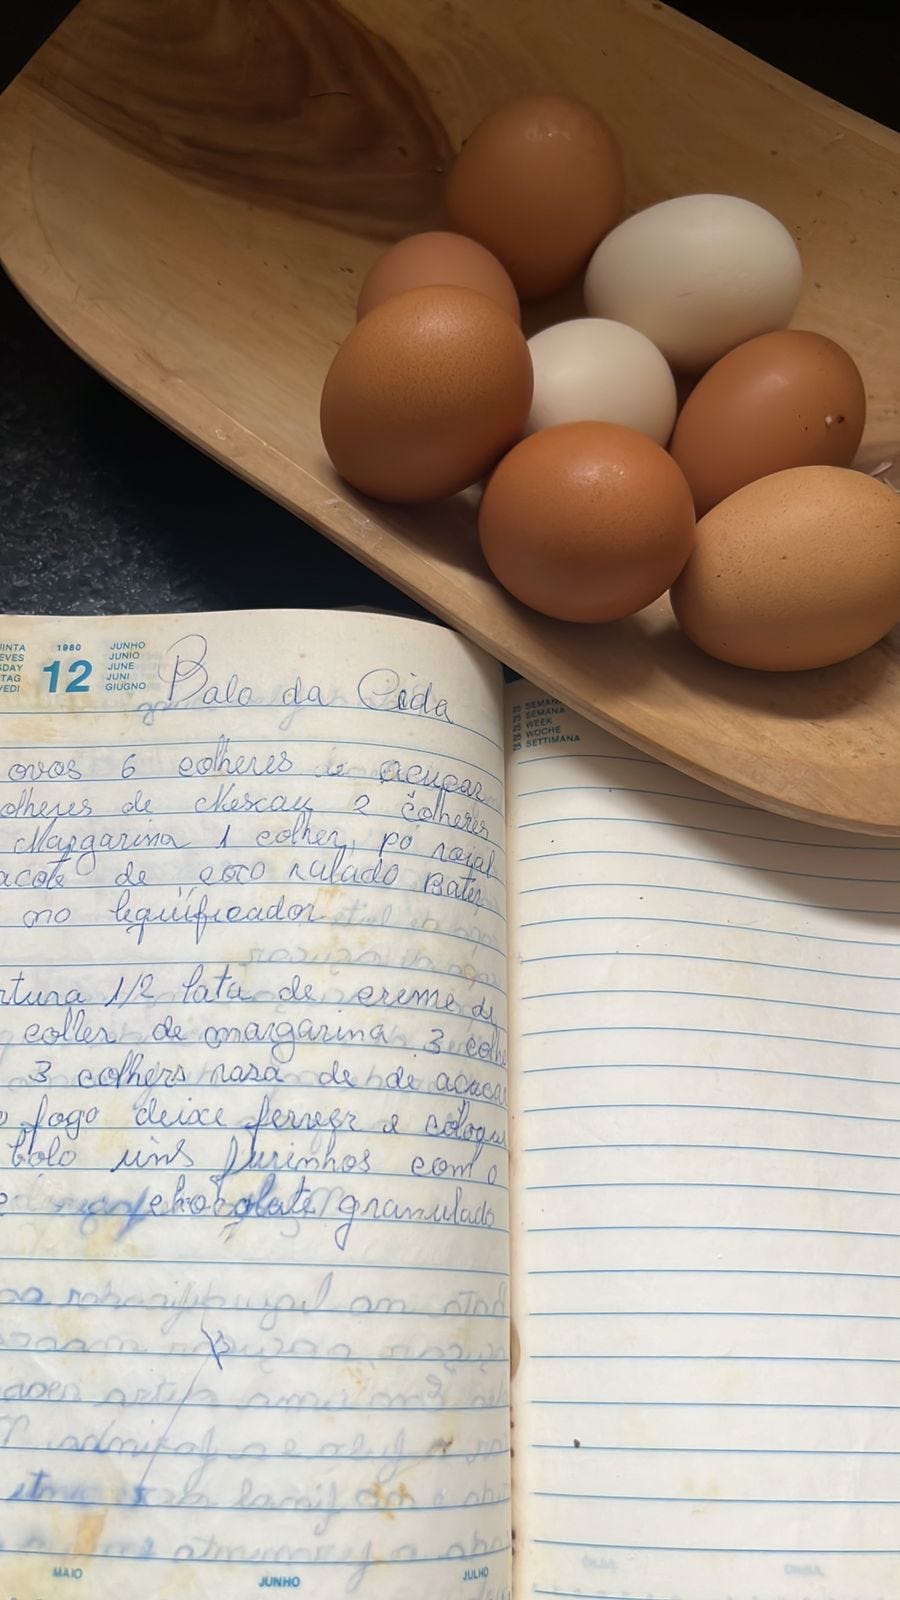 1980
12
JUNHO
JUNIO
JUNE
JUNI
GIUGNO
Balo da Cida
ovos 6 colheres açucar
olheres de Nescau 2 colheres
Margarina 1 colher, pó roial
acote de coco ralado Bater
no liquificador
rtura 1/2 lata de creme de
colher de margarina 3 colhe
3 colhers rasa de de açucar
o fogo deixe ferver e coloque
bolo uns furinhos com o
e chocolate granulado
25 SEMANA
25 SEMANA
25 WEEK
25 WOCHE
25 SETTIMANA
MAIO
JUNHO
JULHO